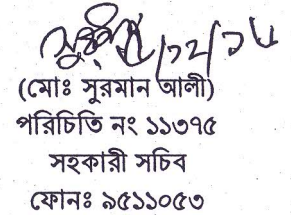 (মোঃ সুরমান আলী)
পরিচিতি নং ১১৩৭৫
সহকারী সচিব
ফোনঃ ৯৫১১০৫৩